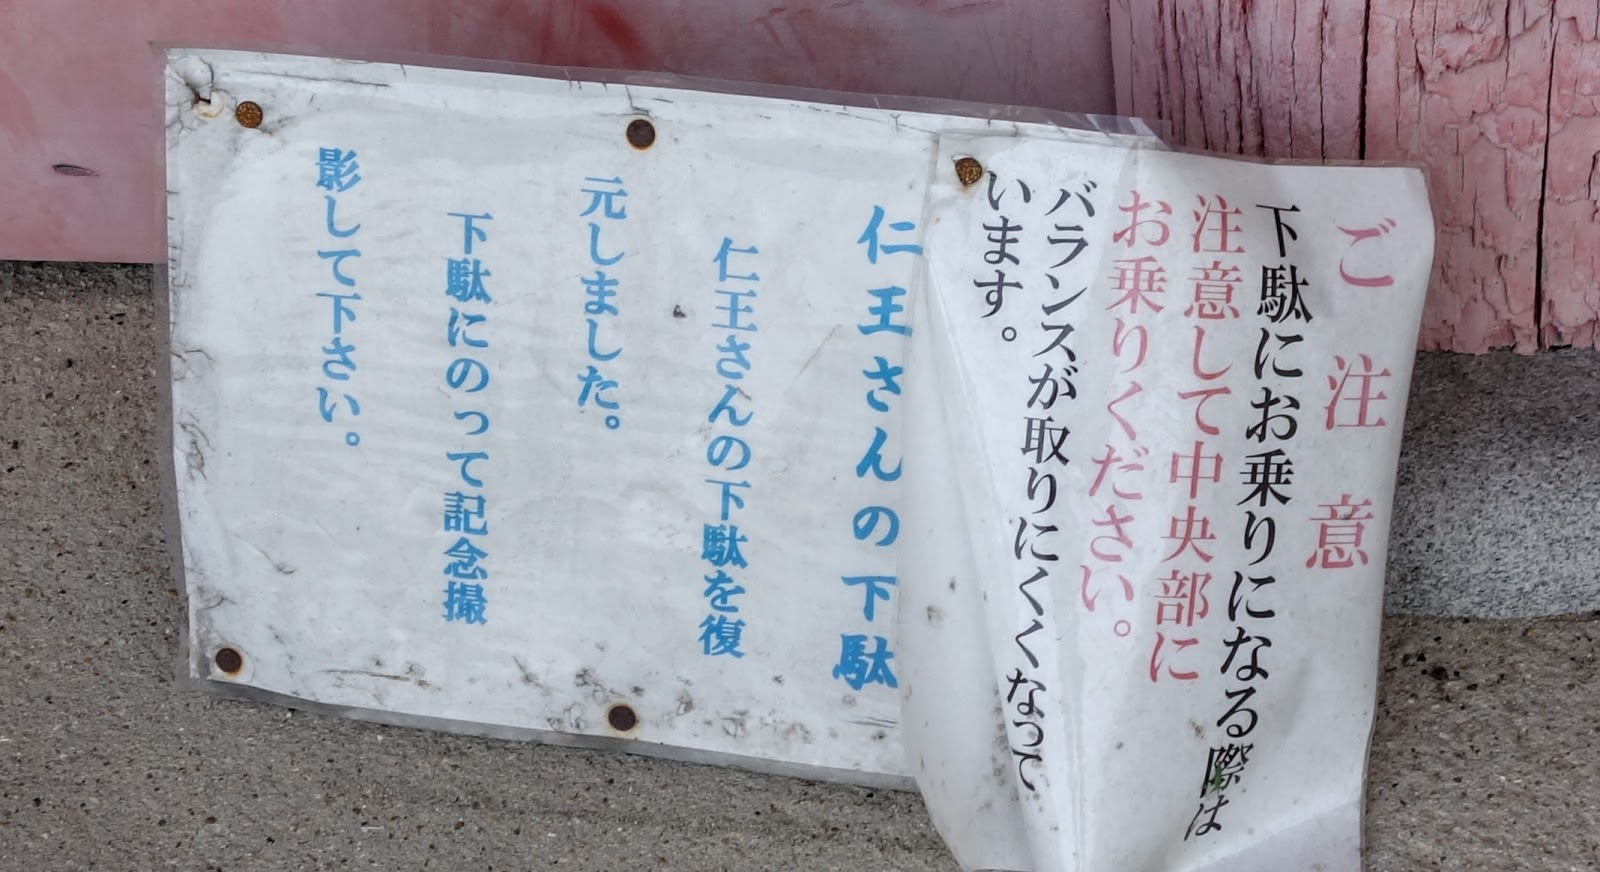 ご注意
下駄にお乗りになる際は
注意して中央部に
お乗りください。
バランスが取りにくくなって
います。
仁王さんの下駄
仁王さんの下駄を復
元しました。
下駄にのって記念撮
影して下さい。